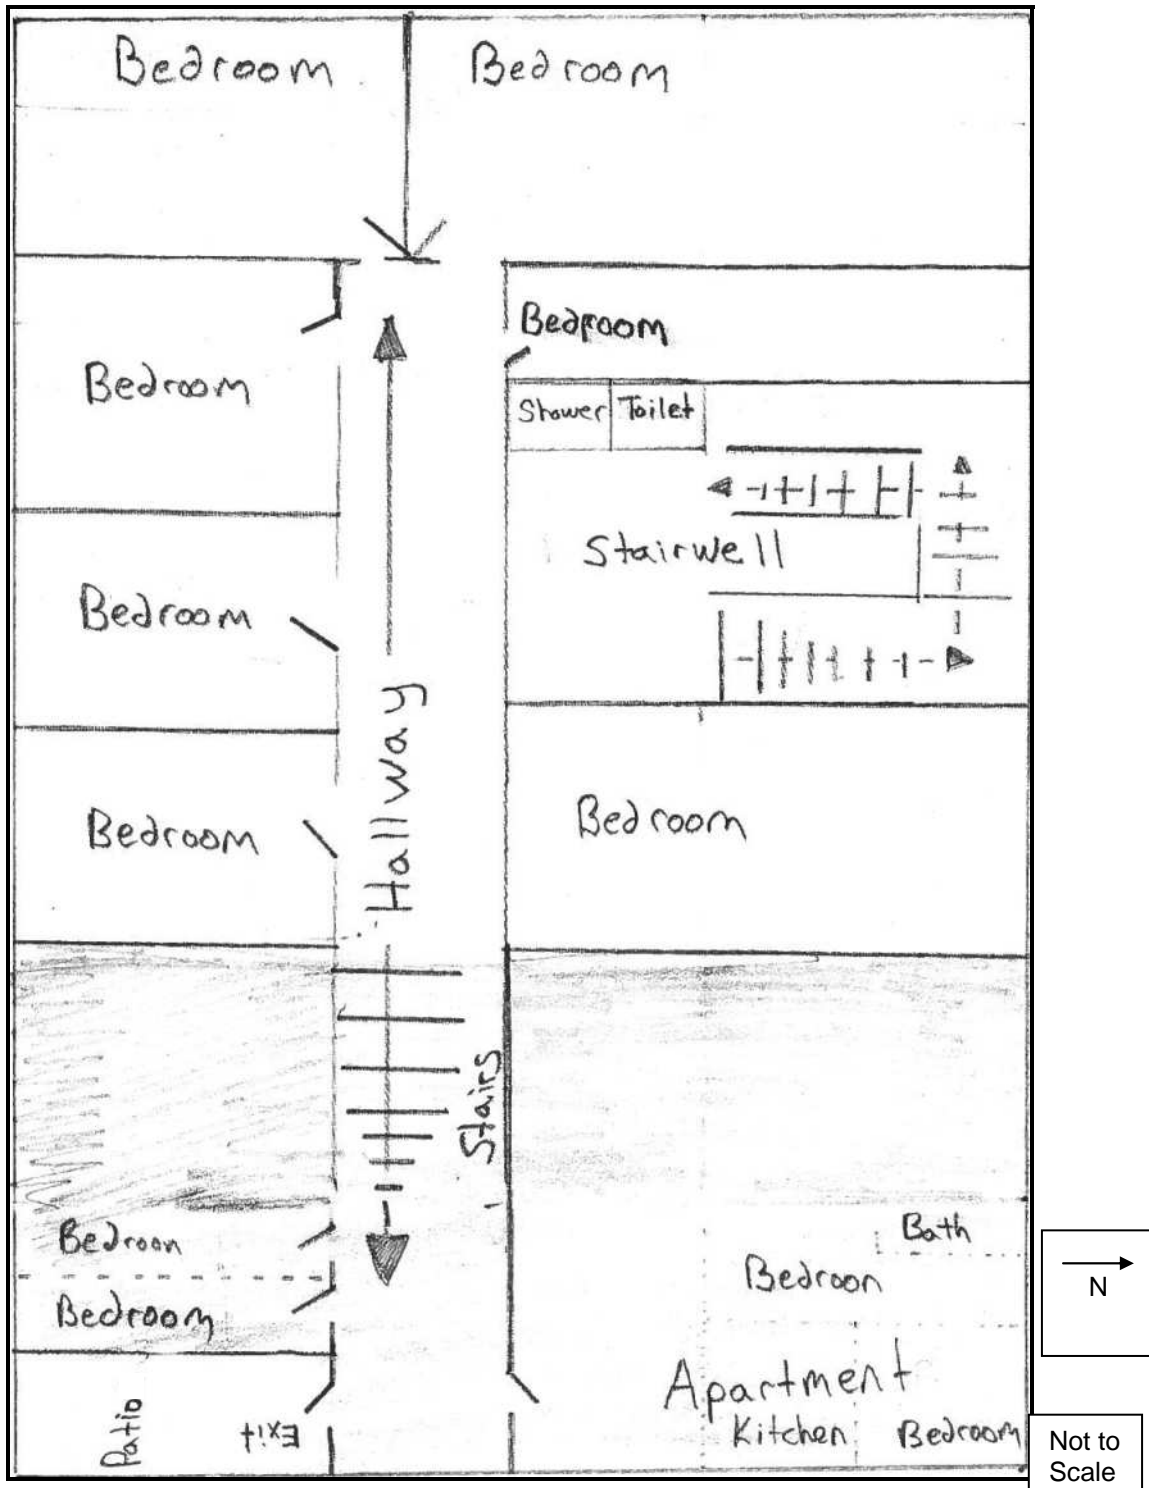 Bedroom
Bedroom
Bedroom
Bedroom
Shower
Toilet
Stairwell
Bedroom
Hallway
Bedroom
Bedroom
Stairs
Bedroon
Bedroom
Bath
Bedroon
Apartment
Kitchen
Bedroom
Patio
Exit
N
Not to
Scale